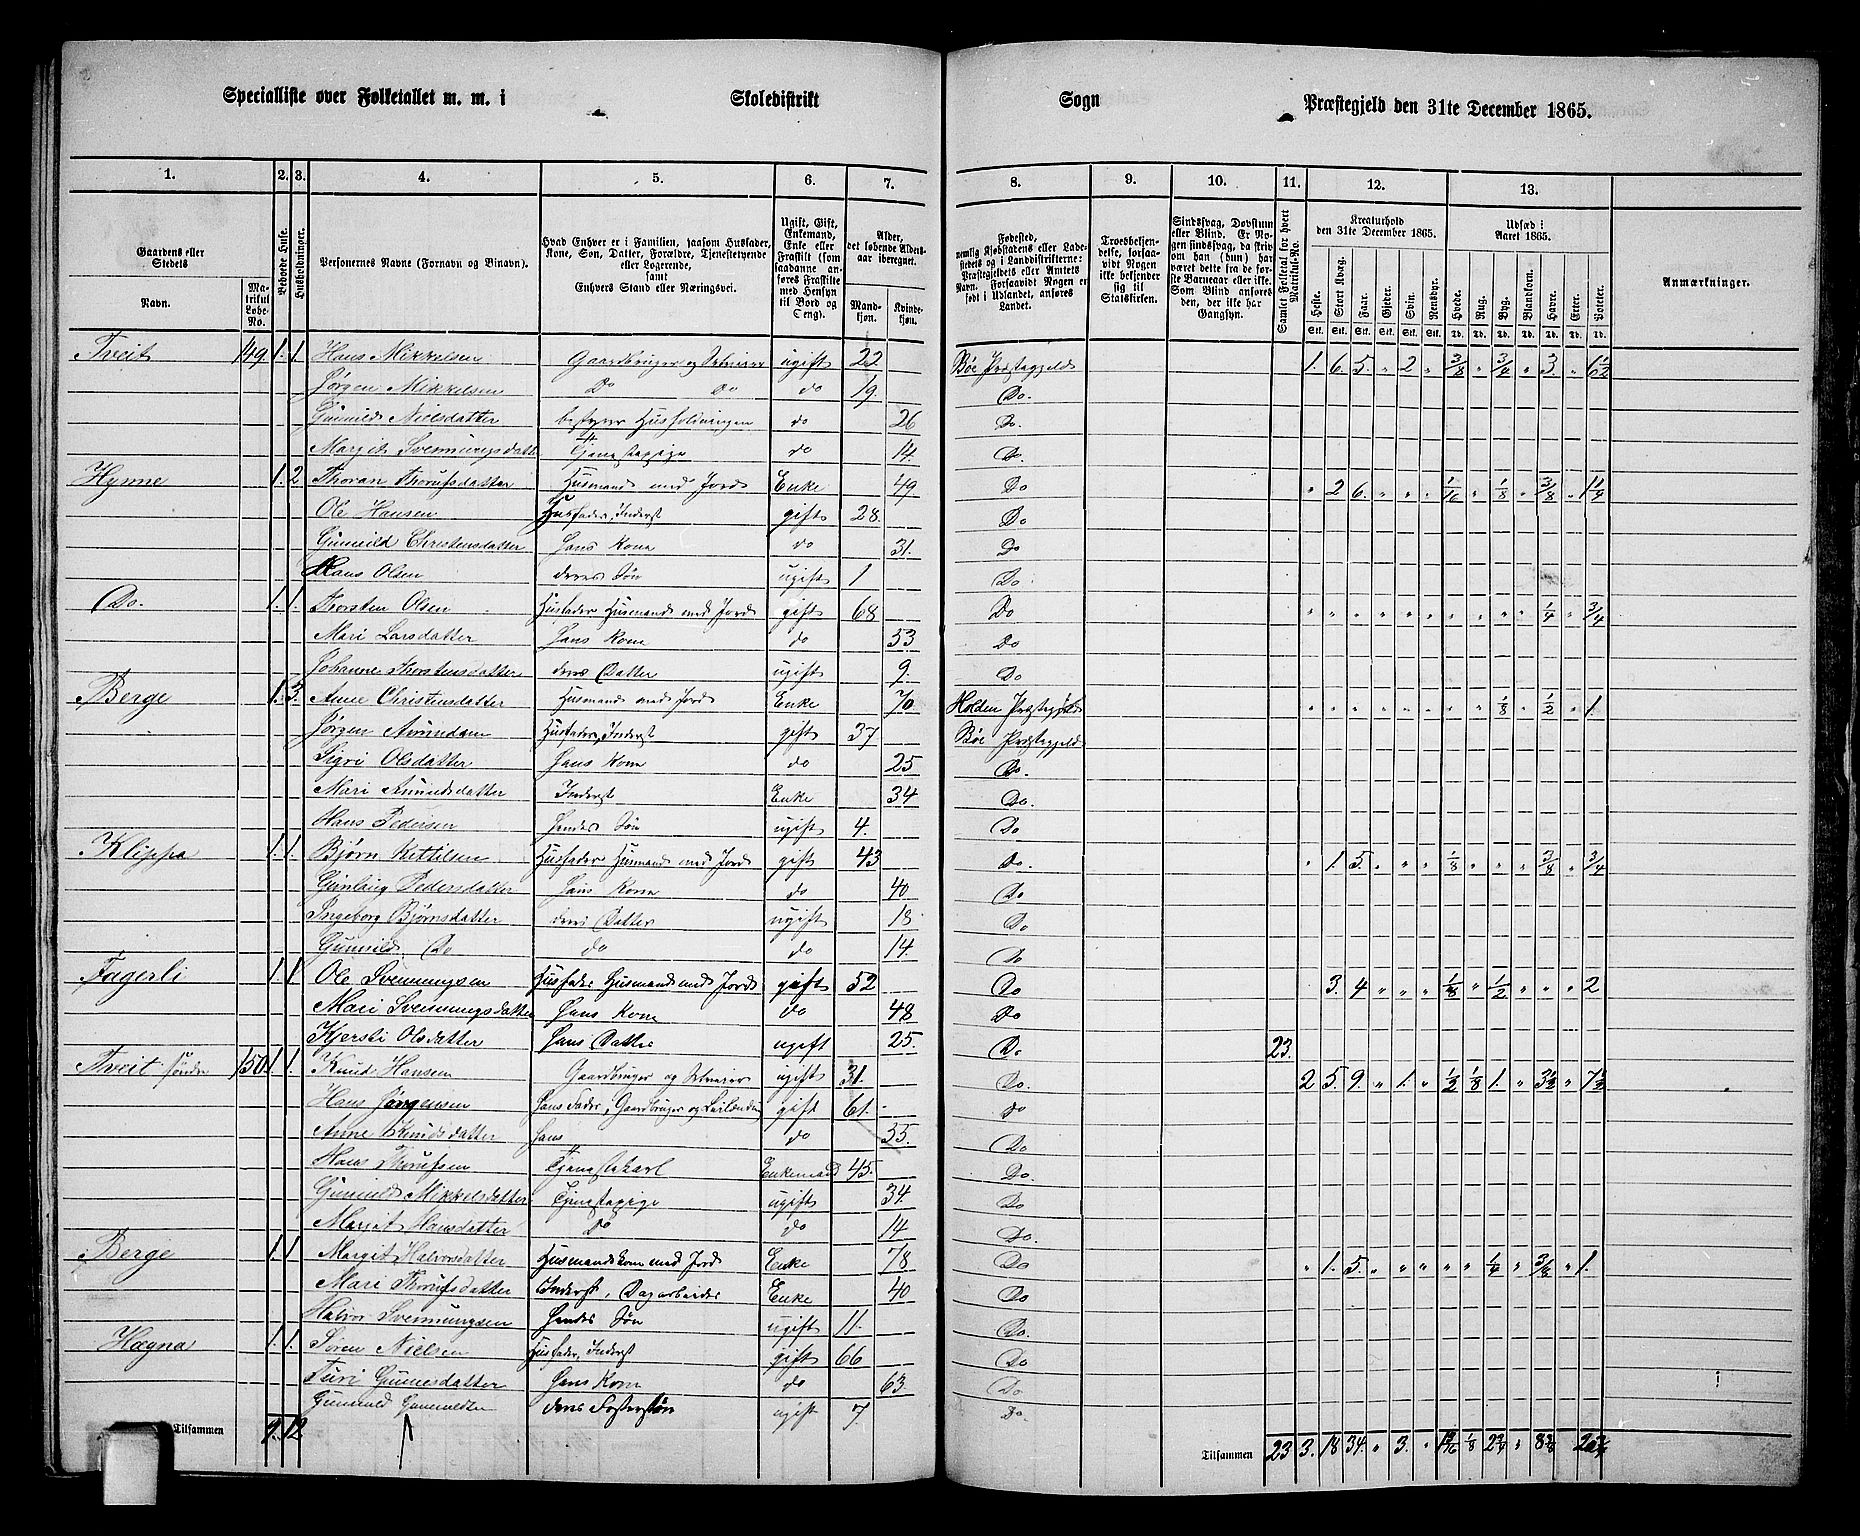 Specialliste over Folketallet m. m. i Skoledistrikt Sogn Præstegjeld den 31te December 1865.
1. 2. 3. 4. 5. 6. 7. 8. 9. 10. 11. 12. 13.
Gaardens eller Stedets Navn. Matrikul Løbe-No. Beboede Huse. Husholdninger. Personernes Navne (Fornavn og Tilnavn). Hvad Enhver er i Familien, saasom Husfader, Kone, Søn, Datter, Forældre, Tjenestetyende eller Logerende, samt Enhvers Stand eller Næringsvei. Ugift, Gift, Enkemand, Enke eller Fraskilt (som saadanne anføres Fraskilte med Hensyn til Bord og Seng). Alder, det løbende Alders-aar iberegnet. Mandkjøn. Kvindekjøn. Fødested, nemlig Kjøbstadens eller Ladestedets og i Landdistrikterne: Præstegjeldets eller Amtets Navn. Forsaavidt Nogen er født i Udlandet, anføres Landet. Troesbekjendelse, forsaavidt Nogen ikke bekjender sig til Statskirken. Sindssvag, Døvstum eller Blind. Er Nogen sindssvag, da skriv om han (hun) har været dette fra de første Barneaar eller ikke. Som Blind anføres den, der ikke har Gangsyn. Samlet Folketal for hvert Matrikul-No. Kreaturhold den 31te December 1865. Heste. Stort Kvæg. Faar. Gjeder. Svin. Rensdyr. Udsæd i Aaret 1865. Hvede. Rug. Byg. Blandkorn. Havre. Erter. Poteter. Anmærkninger.
Tveit 149 1. 1. Hans Mikkelsen Gaardbruger og Selveier ugift 22 Bøe Præstegjeld 1. 6. 5. " 2 " 3/8 " 3/4 " 3. " 6 1/2
Jørgen Mikkelsen Do Do do 19 Do.
Gunnild Nielsdatter bestyrer Husholdningen do 26 Do.
Margit Svennungsdatter Tjenestepige do 14. Do.
Hynne 1. 2 Thoran Thorufsdatter Husmand med Jord Enke 49 Do " 2 6. " " " 1/16 " 1/8 " 3/8 " 1 1/4
Ole Hansen Husfader, Inderst gift 28. Do
Gunnild Christensdatter Hans Kone do 31. Do
Hans Olsen deres Søn ugift 1 Do
Do. 1. 1. Thorsten Olsen Husfader Husmand med Jord gift 68 Do " " " " " " " " " " 1/4 " 3/4
Mari Larsdatter Hans Kone do 53 Do
Johanne Thorstensdatter deres Datter ugift 9. Do
Berge 1. 3. Anne Christensdatter Husmand med Jord Enke 70 Holden Præstegjeld " " " " " " " " 1/8 " 1/2 " 1.
Jørgen Amundsen Husfader, Inderst gift 37 Bøe Præstegjeld
Sigri Olsdatter Hans Kone do 25 Do.
Mari Amundsdatter Inderst Enke 34 Do.
Hans Pedersen Hendes Søn ugift 4. Do
Klippa 1. 1. Bjørn Kittilsen Husfader Husmand med Jord gift 43 Do. " 1. 5. " " " 1/8 " " " 3/8 " 3/4
Gunlaug Pedersdatter Hans Kone do 40 Do
Ingeborg Bjørnsdatter deres Datter ugift 18 Do
Gunnild Do do do 14. Do
Fagerli 1. 1. Ole Svennungsen Husfader Husmand med Jord gift 52 Do 3. 4 " " " 1/8 " 1/2 " " " 2
Mari Svennungsdatter Hans Kone do 48 Do
Kjersti Olsdatter Hans Datter ugift 25. Do 23.
Tveit søndre 150. 1. 1. Knud Hansen Gaardbruger og Selveier ugift 31. Do. 2 5. 9. " 1. " 1/2 1/8 1. " 3 1/2 " 7 1/2
Hans Jørgensen Hans Fader, Gaardbruger og gift 61. Do
Anne Knudsdatter Hans do 35. Do
Hans Thorufsen Tjenestekarl Enkemand 45. Do
Gunnild Mikkelsdatter Tjenestepige ugift 34 Do
Margit Hansdatter Do do 14 Do.
Berge 1. 1. Margit Halvorsdatter Husmandskone med Jord Enke 78 Do " 1. 5. " " " " " 1/4 " 3/8 " 1.
Mari Thorufsdatter Inderst, Dagarbeider Enke 40 Do
Halvor Svennungsen Hendes Søn ugift 11. Do
Hægna 1. 1. Søren Nielsen Husfader, Inderst gift 66 Do
Turi Gunnesdatter Hans Kone do 63 Do
Gunnuld deres Fostersøn ugift 7 Do.
Tilsammen 9. 12 Tilsammen 23 3. 18 34. " 3. " 1/8 "